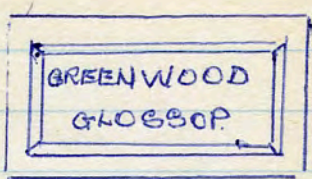 GREENWOOD
GLOSSOP.